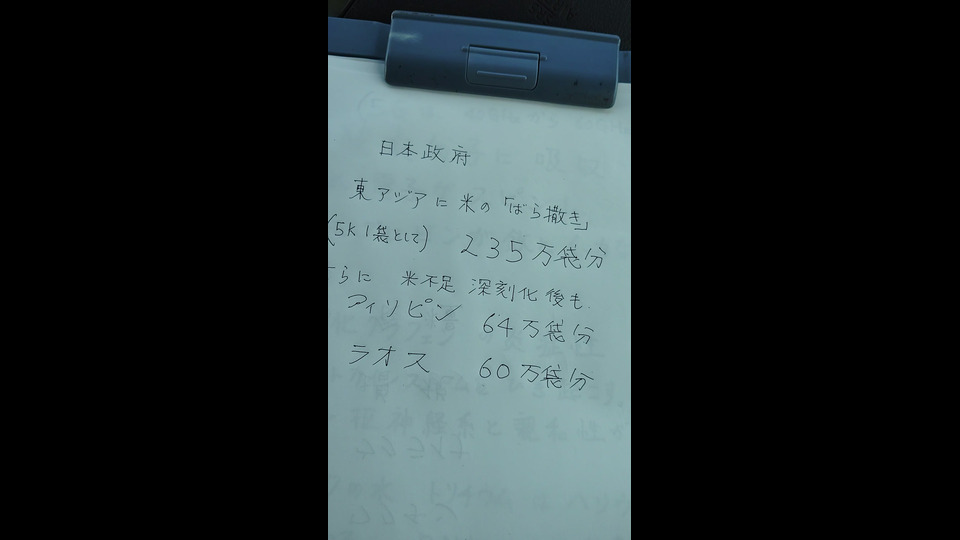 日本政府
東アジアに米の「ばら撒き」
(5K1袋として) 235万袋分
さらに 米不足 深刻化後も
フィリピン 64万袋分
ラオス 60万袋分